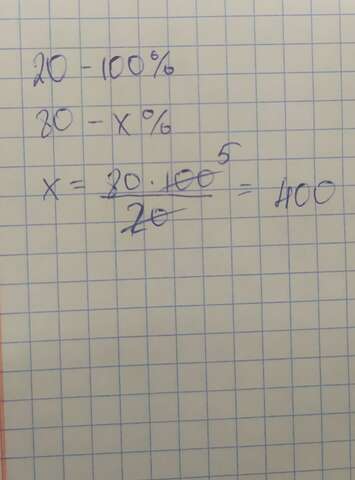 20 - 100%
80 - x%
x = 80 · 100 5 / 20 = 400